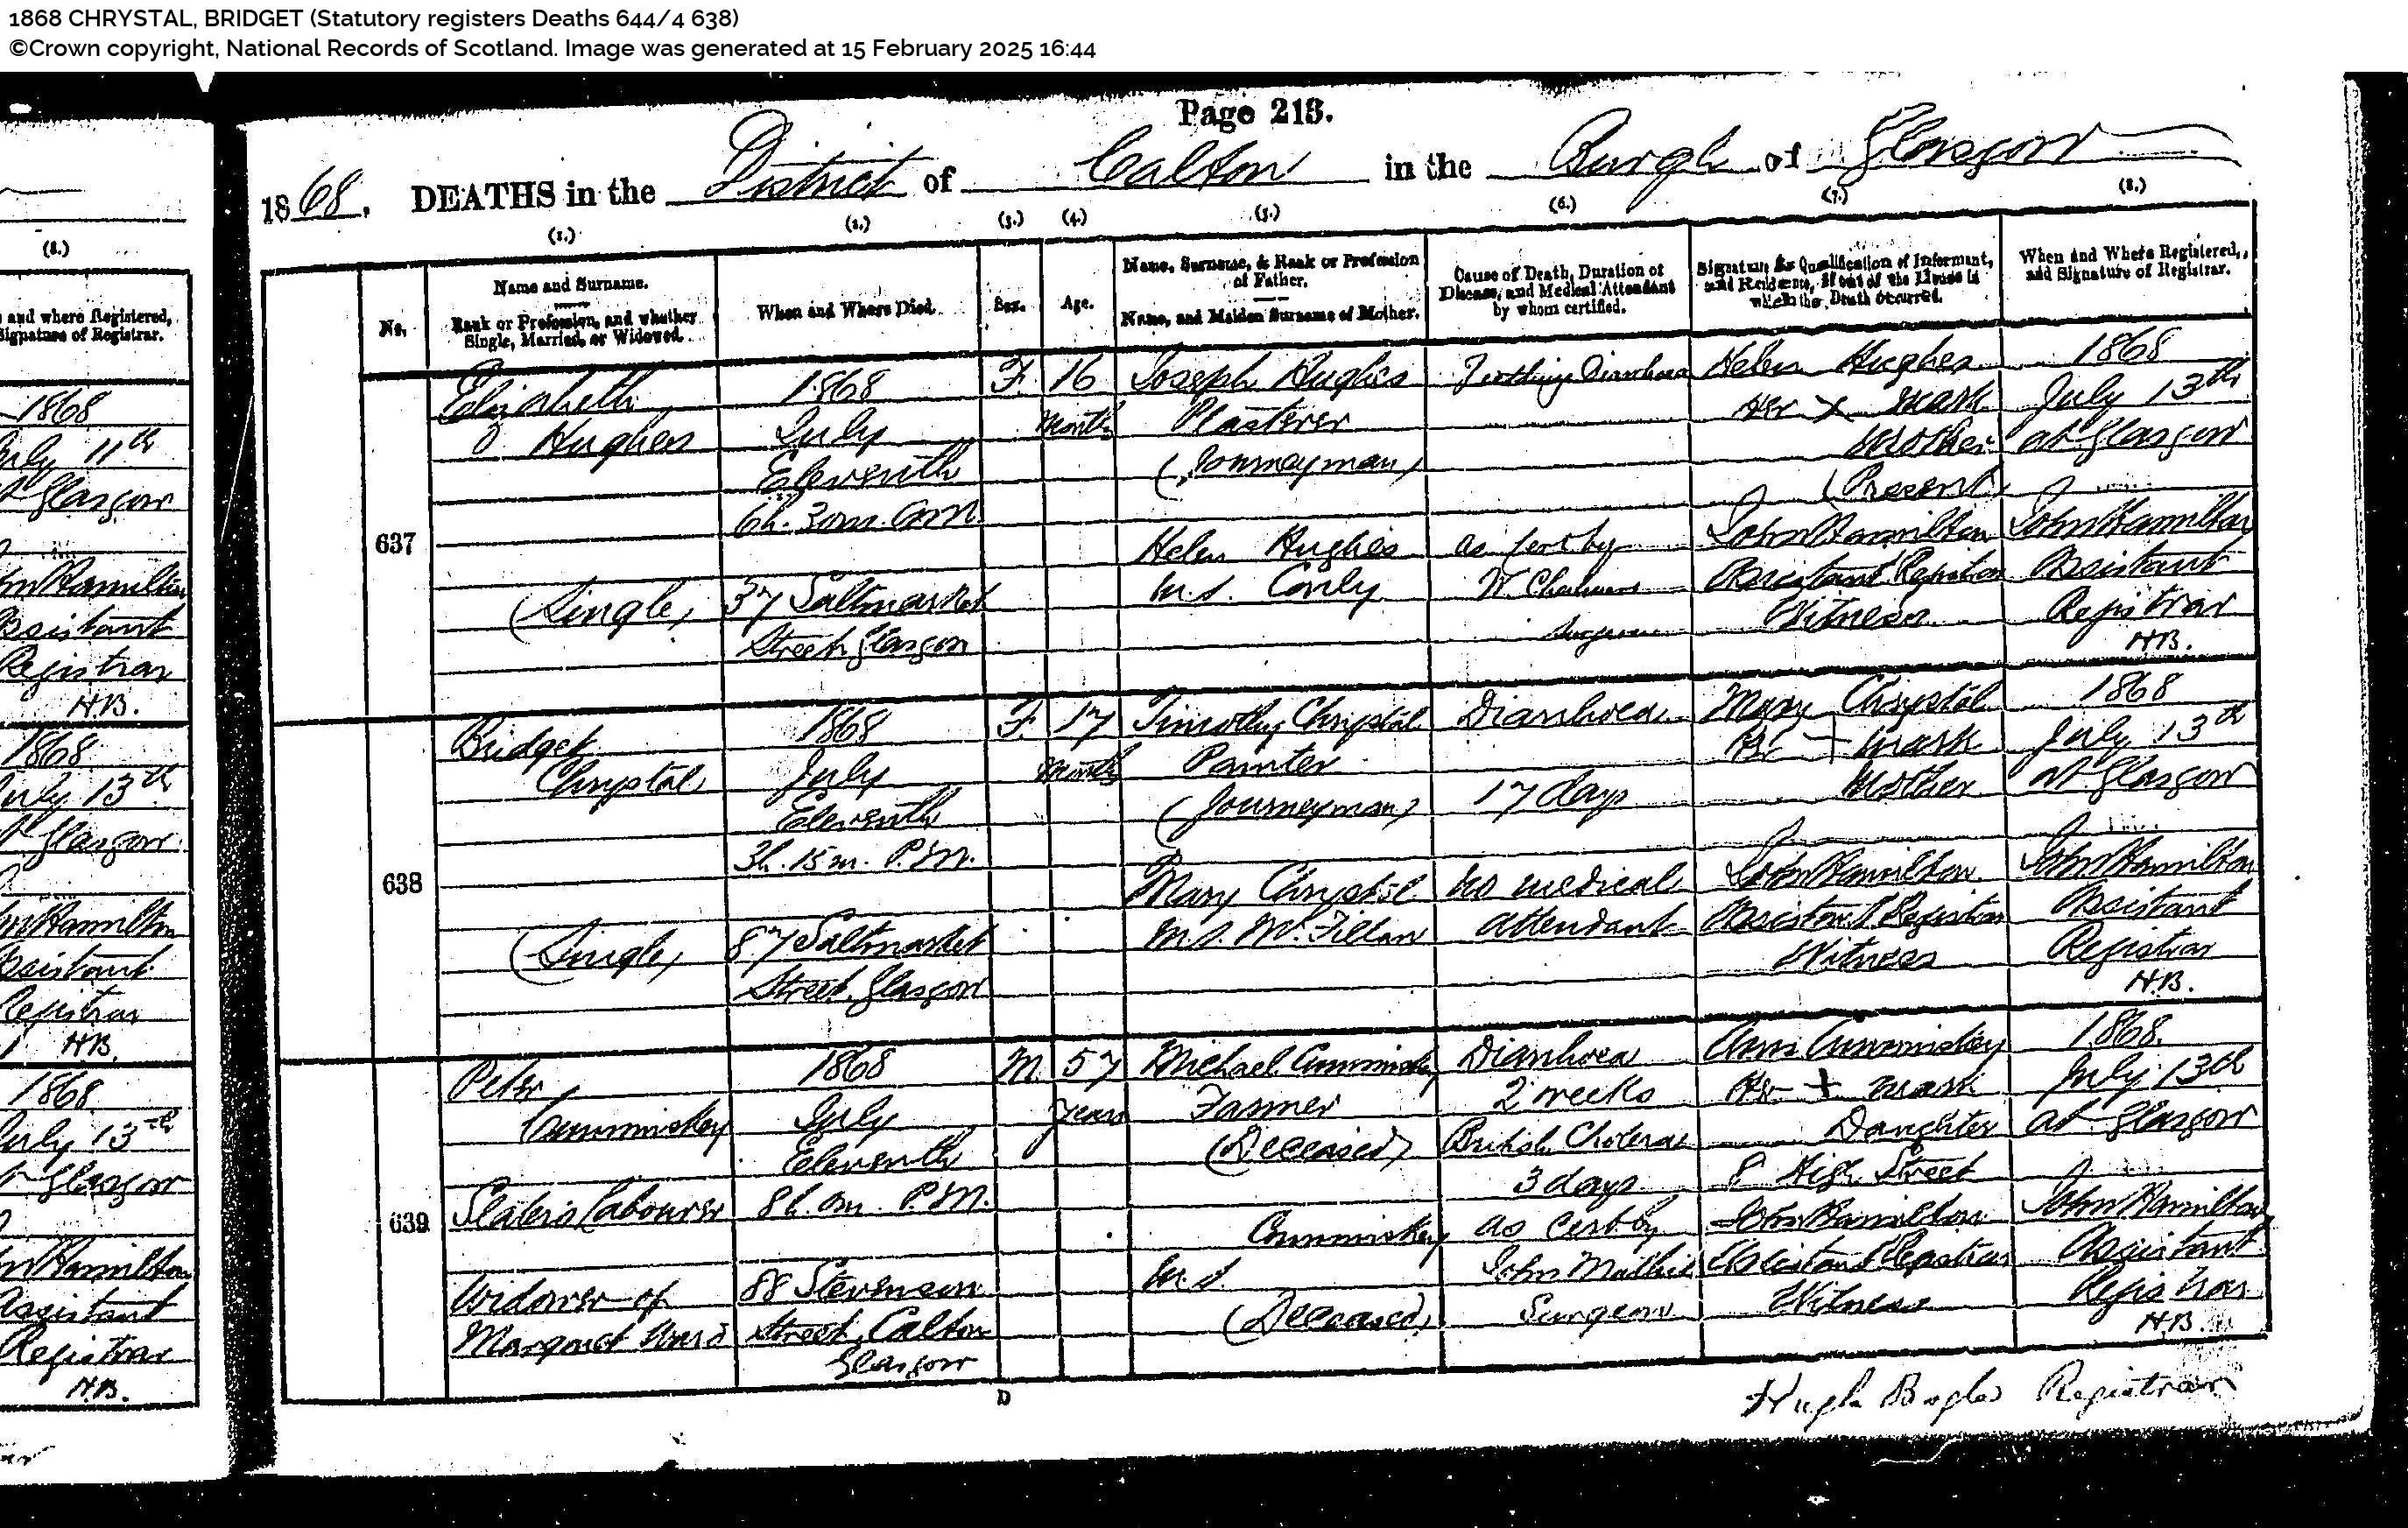 1868 CHRYSTAL, BRIDGET (Statutory registers Deaths 644/4 638)
©Crown copyright, National Records of Scotland. Image was generated at 15 February 2025 16:44
Page 213.
1868. DEATHS in the District of Calton in the Burgh of Glasgow
(1.) (2.) (3.) (4.) (5.) (6.) (7.) (8.)
No.
Name and Surname.
Rank or Profession, and whether
Single, Married, or Widowed.
When and Where Died.
Sex.
Age.
Name, Surname, & Rank or Profession
of Father.
Name, and Maiden Surname of Mother.
Cause of Death, Duration of
Disease, and Medical Attendant
by whom certified.
Signature & Qualification of Informant,
and Residence, if out of the House in
which the Death occurred.
When and Where Registered,
and Signature of Registrar.
637
Elizabeth
Hughes
(Single)
1868
July
Eleventh
6h. 30m. A.M.
37 Saltmarket
Street Glasgow
F.
16
Months
Joseph Hughes
Plasterer
(Journeyman)
Helen Hughes
m.s. Conly
Teething Diarrhoea
as cert by
W Chalmers
Surgeon
Helen Hughes
Her x mark
Mother
(Present)
John Hamilton
Assistant Registrar
Witness
1868
July 13th
at Glasgow
John Hamilton
Assistant
Registrar
H.B.
638
Bridget
Chrystal
(Single)
1868
July
Eleventh
3h. 15m. P.M.
87 Saltmarket
Street, Glasgow
F.
17
Months
Timothy Chrystal
Painter
(Journeyman)
Mary Chrystal
m.s. McFillan
Diarrhoea
17 days
No medical
attendant
Mary Chrystal
Her + mark
Mother
John Hamilton
Assistant Registrar
Witness
1868
July 13th
at Glasgow
John Hamilton
Assistant
Registrar
H.B.
639
Peter
Cummiskey
Slater's Labourer
Widower of
Margaret Ward
1868
July
Eleventh
8h. 0m. P.M.
88 Stevenson
Street, Calton
Glasgow
M.
57
years
Michael Cummiskey
Farmer
(Deceased)
Cummiskey
m.s.
(Deceased)
Diarrhoea
2 weeks
British Cholera
3 days
as cert by
John Mathie
Surgeon
Ann Cummiskey
Her + mark
Daughter
8 High Street
John Hamilton
Assistant Registrar
Witness
1868.
July 13th
at Glasgow
John Hamilton
Assistant
Registrar
H.B.
D
Hugh Bogle Registrar
(8.)
and where Registered,
Signature of Registrar.
1868
July 11th
Glasgow
Hamilton
Assistant
Registrar
H.B.
1868
July 13th
Glasgow
Hamilton
Assistant
Registrar
H.B.
1868
July 13th
Glasgow
Hamilton
Assistant
Registrar
H.B.